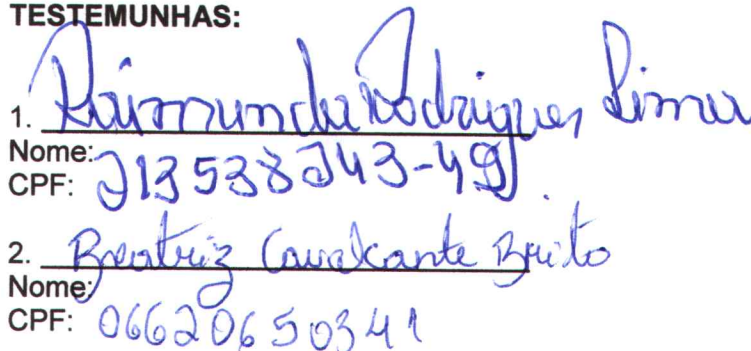 TESTEMUNHAS:
1. Raimunda Rodrigues Lima
Nome:
CPF: 213538243-49
2. Beatriz Cavalcante Brito
Nome:
CPF: 06620650341